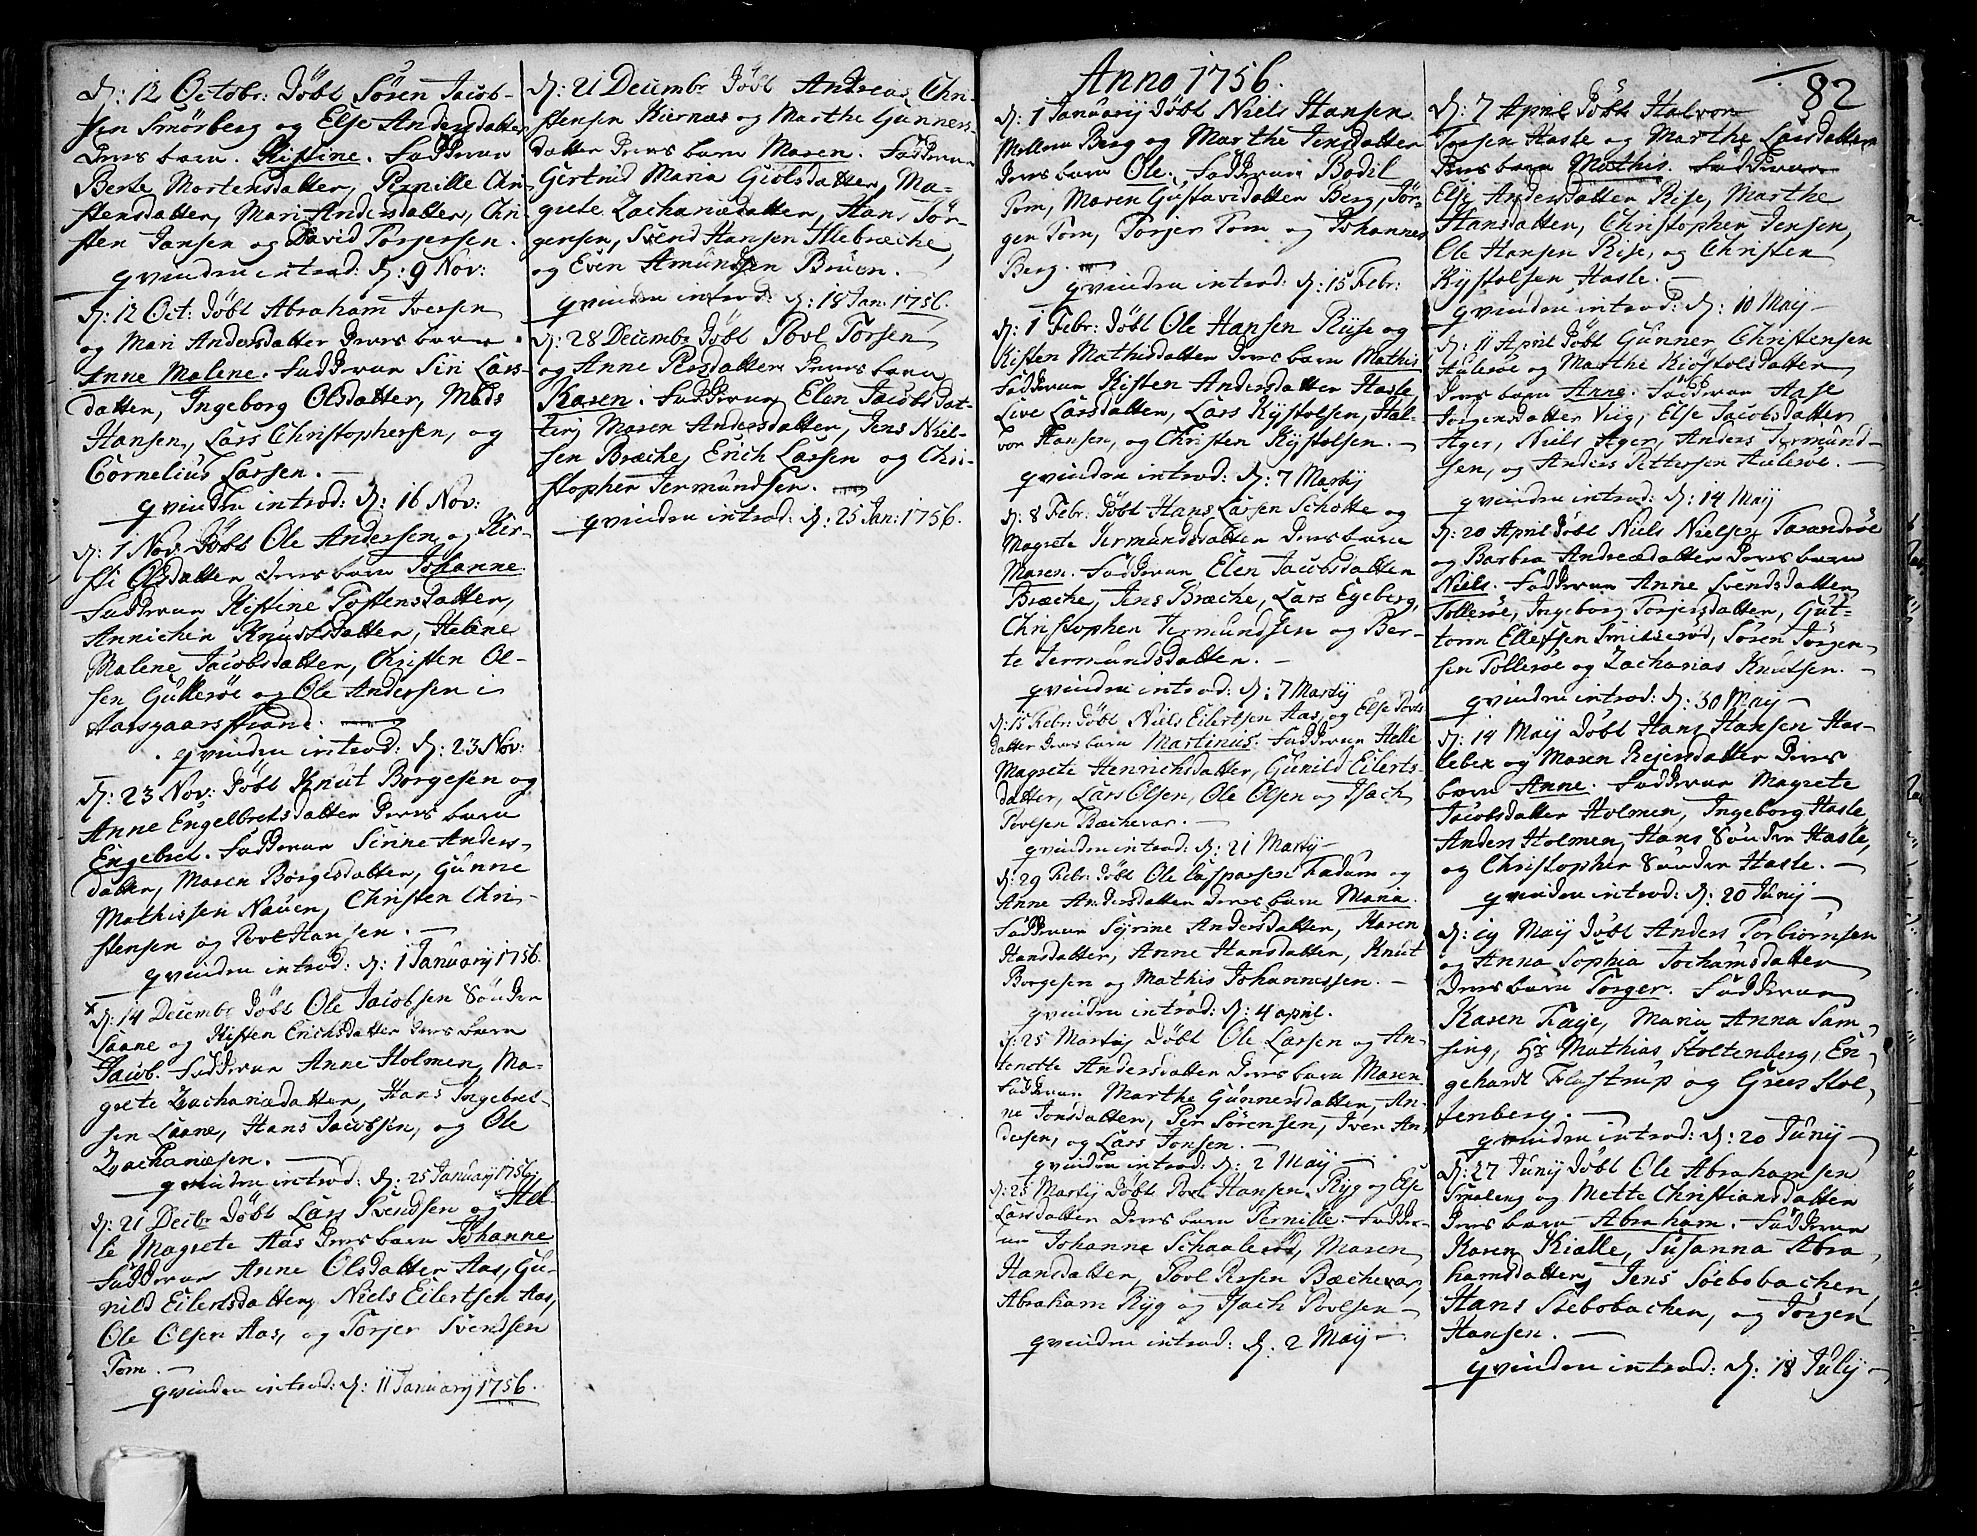 d: 12 Octobr: Döbt Sören Jacob-
sen Smörberg og Else Andersdatter
deres barn. Kistine. Fadderne
Berte Mortensdatter, Pernille Chri-
stensdatter, Mari Andersdatter, Chri-
sten Jansen og David Torjersen.
qvinden introd: d: 9 Nov:
d: 12 Oct: Döbt Abraham Iversen
og Mari Andersdatter deres barn
Anne Malene. Fadderne Siri Lars-
datter, Ingeborg Olsdatter, Mads
Hansen, Lars Christophersen, og
Cornelius Larsen.
qvinden introd: d: 16 Nov:
d: 1 Nov: Döbt Ole Andersen og Kir-
sti Olsdatter deres barn Johanne.
Fadderne Kistine Tostensdatter,
Annichen Knutsdatter, Helene
Malene Jacobsdatter, Christen Ol-
sen Gulleröe og Ole Andersen i
Aasgaarsstrand.
qvinden introd: d: 23 Nov:
d: 23 Nov: Döbt Knut Borgesen og
Anne Engelbretsdatter deres barn
Engebret. Fadderne Sinne Anders-
datter, Maren Borgesdatter, Gunne
Mathissen Nauen, Christen Chri-
stensen og Povl Hansen.
qvinden introd: d: 1 Januarij 1756.
x d: 14 Decembr Döbt Ole Jacobsen Sönder
Laane og Kisten Erichsdatter deres barn
Jacob. Fadderne Anne Holmen, Ma-
grete Zachariædatter, Hans Ingebret-
sen Laane, Hans Jacobsen, og Ole
Zachariæsen.
qvinden introd: d: 25 Januarij 1756.
d: 21 Decbr Döbt Lars Svendsen og Hel-
le Magrete Aas deres barn Johanne
Fadderne Anne Olsdatter Aas, Gu-
nild Eilertsdatter, Niels Eilertsen Aas,
Ole Olsen Aas, og Torjer Svendsen
Tom.
qvinden introd: d: 11 Januarij 1756.
d: 21 Decembr Döbt Andreas Chri-
stensen Kiernæs og Marthe Gunners-
datter deres barn Maren. Fadderne
Gertrud Maria Giölsdatter, Ma-
grete Zachariædatter, Hans Jör-
gensen, Svend Hansen Illebræche,
og Even Amundsen Bruen.
qvinden introd: d: 18 Jan: 1756.
d: 28 Decembr Döbt Povl Torsen
og Anne Persdatter deres barn
Karen. Fadderne Elen Jacobsdat-
ter, Maren Andersdatter, Jens Niel-
sen Bræche, Erich Larsen og Chri-
stopher Jermundsen.
qvinden introd: d: 25 Jan: 1756.
Anno 1756.
82
d: 1 Januarij Döbt Niels Hansen
Mellem Berg og Marthe Jensdatter
deres barn Ole. Fadderne Bodil
Tom, Maren Gustavsdatter Berg, Jör-
gen Tom, Torjer Tom og Johannes
Berg.
qvinden introd: d: 15 Febr:
d: 1 Febr: Döbt Ole Hansen Riise og
Kisten Mathisdatter deres barn Mathis
Fadderne Kisten Andersdatter Hasle,
Live Larsdatter, Lars Kystolsen, Hal-
vor Hansen, og Christen Kystolsen.
qvinden introd: d: 7 Martij
d: 8 Febr: Döbt Hans Larsen Scholte og
Magrete Jermundsdatter deres barn
Maren. Fadderne Elen Jacobsdatter
Bræche, Jens Bræche, Lars Egeberg,
Christopher Jermundsen og Ber-
te Jermundsdatter.
qvinden introd: d: 7 Martij
d: 15 Febr: Döbt Niels Eilertsen Aas og Else Povls
datter deres barn Martinus. Fadderne Helle
Magrete Henrichsdatter, Gunild Eilerts-
datter, Lars Olsen, Ole Olsen og Isach
Povlsen Bæchevar.
qvinden introd: d: 21 Martij
d: 29 Febr: Döbt Ole Casparsen Fadum og
Anne Andersdatter deres barn Maria.
Fadderne Syrine Andersdatter, Karen
Hansdatter, Anne Hansdatter, Knut
Borgesen og Mathis Johannessen.
qvinden introd: d: 4 april.
d: 25 Martij Döbt Ole Larsen og An-
tenette Andersdatter deres barn Maren.
Fadderne Marthe Gunnersdatter, An-
ne Jonsdatter, Per Sörensen, Iver An-
dersen, og Lars Jonsen.
qvinden introd: d: 2 Maij
d: 25 Martij Döbt Povl Hansen Ryg og Else
Larsdatter deres barn Pernille. Fadder-
ne Johanne Schaaleröd, Maren
Hansdatter, Povl Persen Bæchevar,
Abraham Ryg og Isach Povlsen
qvinden introd: d: 2 Maij
d: 7 April Döbt Halvor
Torsen Hasle og Marthe Larsdatter
deres barn Mathis. Fadderne
Else Andersdatter Rise, Marthe
Hansdatter, Christopher Jensen,
Ole Hansen Rise, og Christen
Kystolsen Hasle.
qvinden introd: d: 10 Maij
d: 11 April Döbt Gunner Christensen
Auleröe og Marthe Kiöstolsdatter
deres barn Anne. Fadderne Aase
Jörgensdatter Viig, Else Jacobsdatter
Ager, Niels Ager, Anders Jermund-
sen, og Anders Pettersen Auleröe.
qvinden introd: d: 14 Maij
d: 20 April Döbt Niels Nielsen Tarandröe
og Barbra Andreædatter deres barn
Niels. Fadderne Anne Svendsdatter
Tolleröe, Ingeborg Torjersdatter, Gut-
torm Ellefsen Smitseröd, Sören Jörgen-
sen Tolleröe og Zacharias Knutsen.
qvinden introd: d: 30 Maij
d: 14 Maij Döbt Hans Hansen Has-
lebex og Maren Rejersdatter deres
barn Anne. Fadderne Magrete
Jacobsdatter Holmen, Ingeborg Hasle,
Anders Holmen, Hans Sönder Hasle,
og Christopher Sönder Hasle.
qvinden introd: d: 20 Junij
d: 19 Maij Döbt Anders Torbiörnsen
og Anna Sophia Jochumsdatter
deres barn Torger. Fadderne
Karen Faye, Maria Anna Sam-
sing, Hr Mathias Stoltenberg, En-
gehardt Flustrup og Grers Stol-
tenberg.
qvinden introd: d: 20 Junij
d: 27 Junij Döbt Ole Abrahamsen
Smaleng og Mette Christiansdatter
deres barn Abraham. Fadderne
Karen Kialle, Susanna Abra-
hamsdatter, Jens Söebobachen,
Hans Siebobachen, og Jörgen
Hansen.
qvinden introd: d: 18 Julij